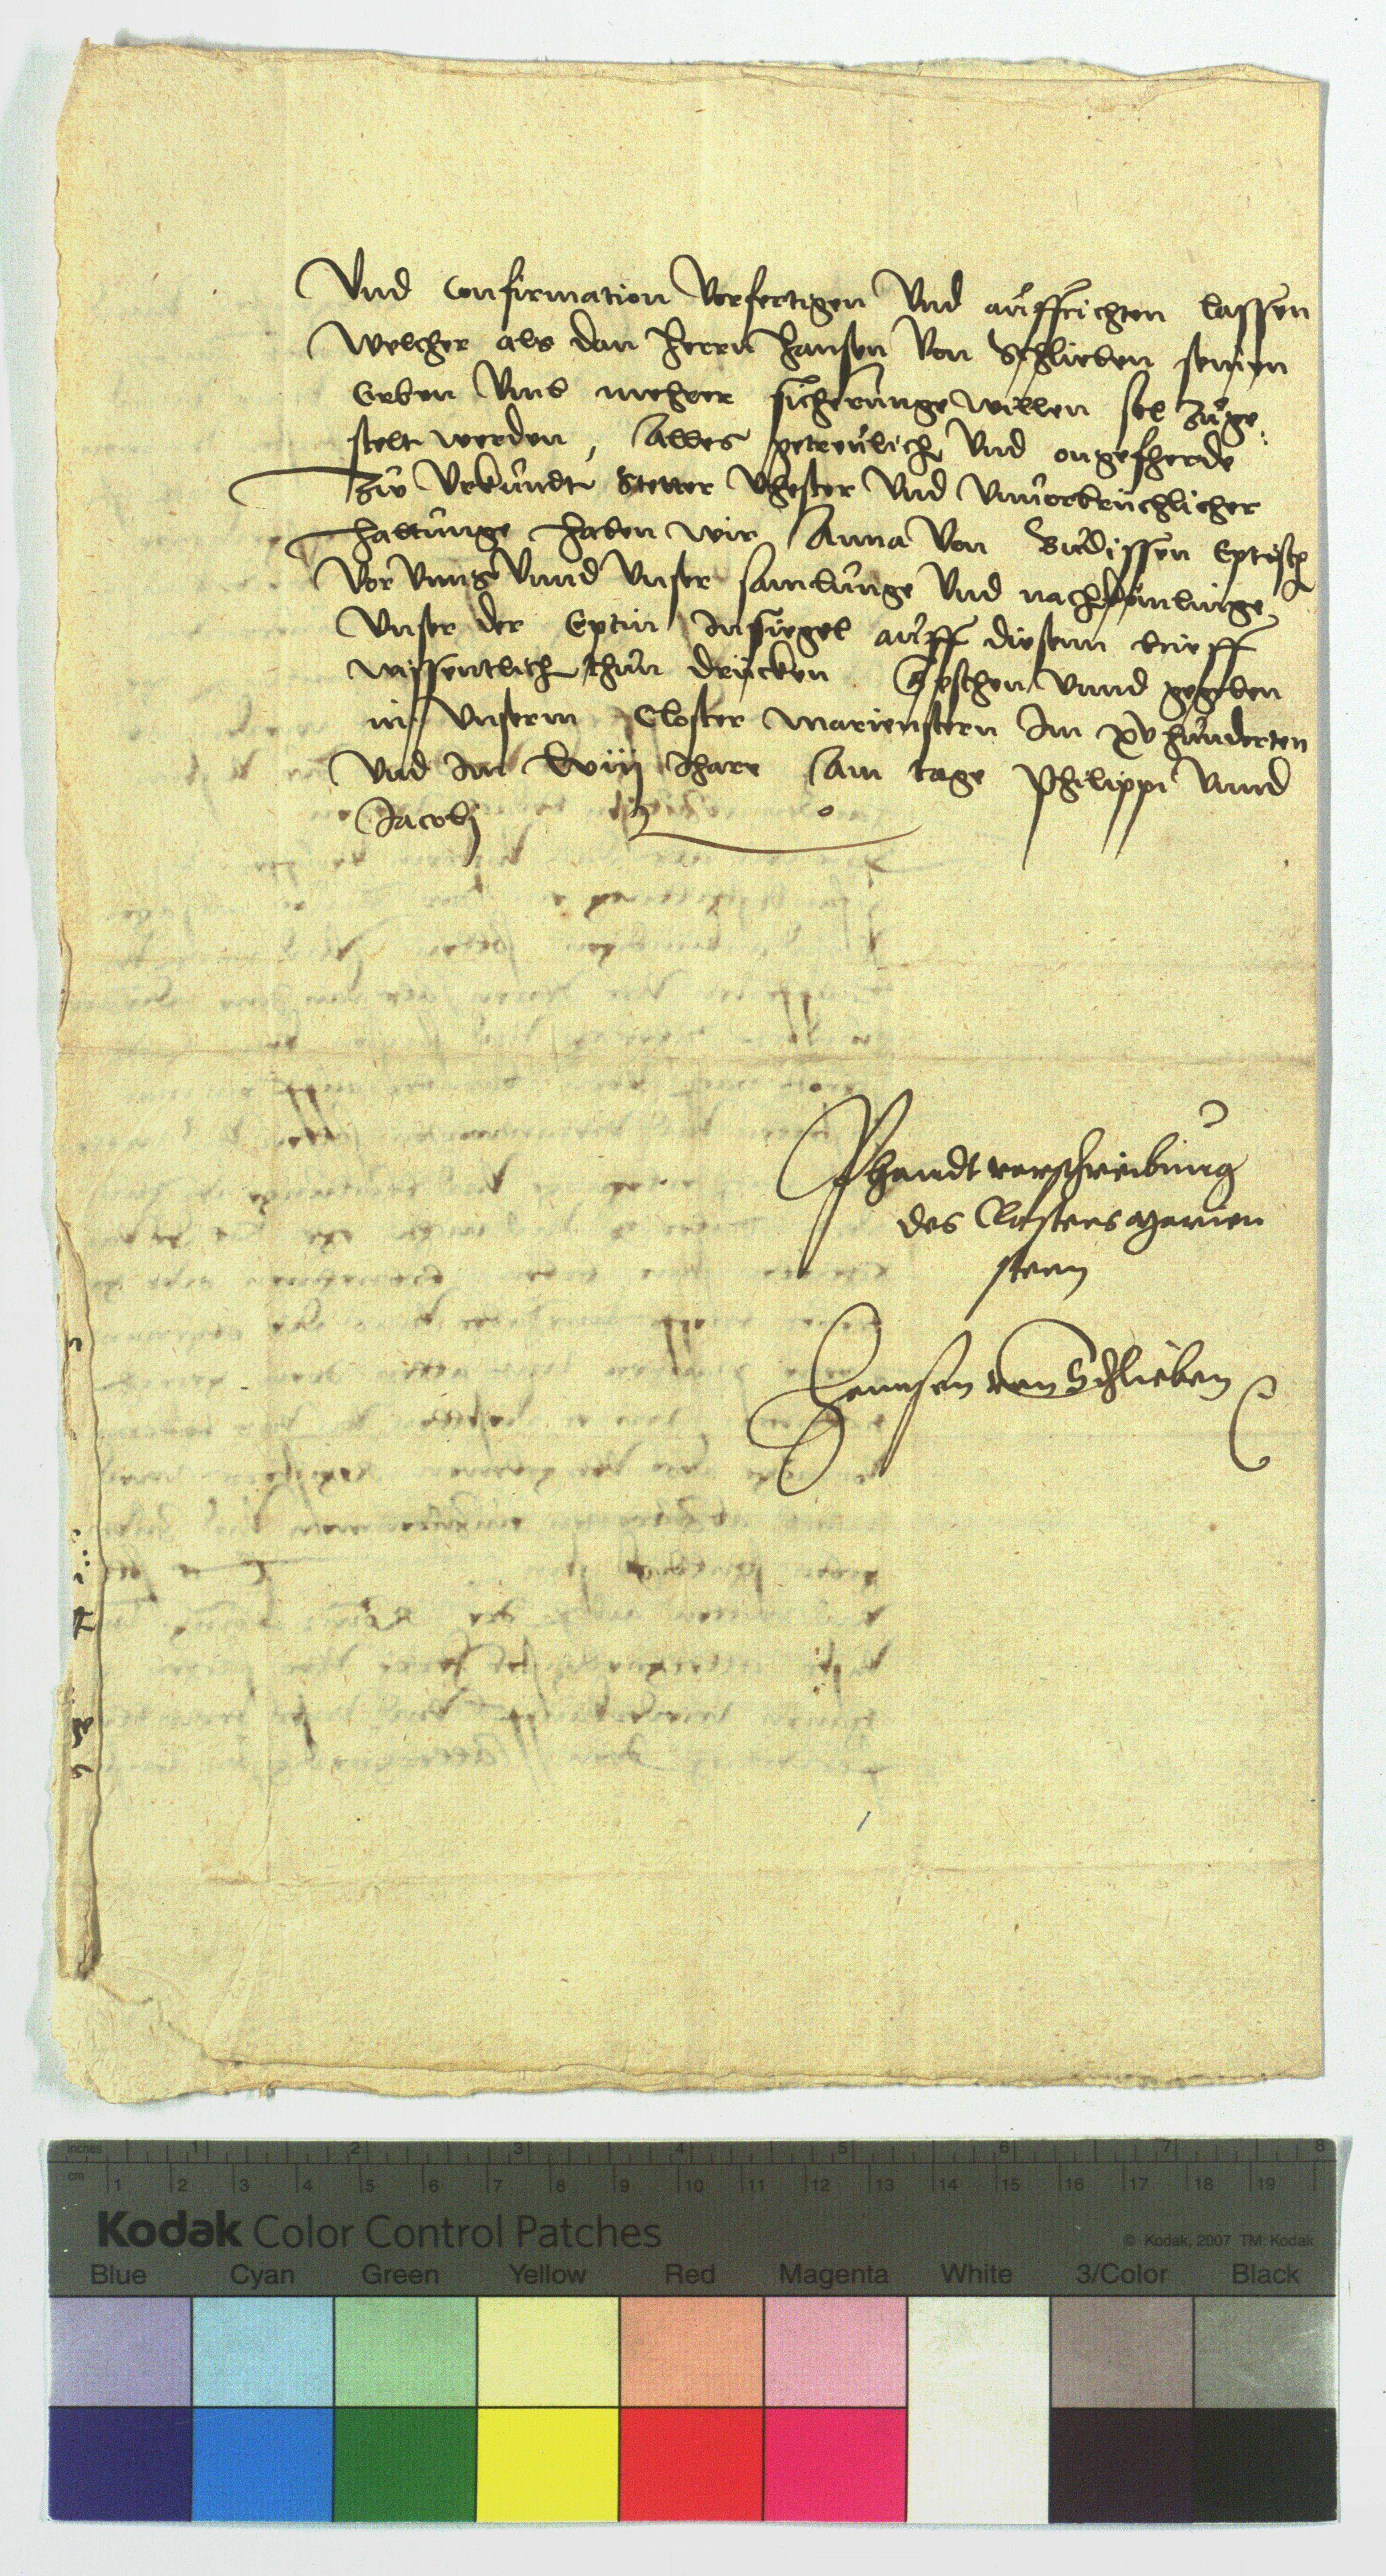 Vnd Confirmation Vorfertigen Vnd auffrichten lassen
Welcher als dan Herrn Hansen Von Schlieben seinen
Erben Vmb mehrer sicherunge willen sol zuge
stelt werden, Alles getreulich Vnd ongefherde
Zw Vrkundt Stetter Vhester Vnd Vnuorbruchlicher
Haltunge Haben wir Anna Von Budissen
Vor Vnns Vnnd Vnser samlunge Vnd nachkomlinge
Vnser der Eptin Insiegel auff diesenn brieff
wissentlich thun drucken Geschen Vnnd gegeben
in Vnserm Closter Marienstern Im xv hunderten
Vnd Im Jhare Am tage Philippi Vnnd
Jacobj
Phandt vorschreibung
des Closters Marien
stern
Hannsen von Schlieben
inches 1 2 3 4 5 6 7 8
cm 1 2 3 4 5 6 7 8 9 10 11 12 13 14 15 16 17 18 19
Kodak Color Control Patches
© Kodak, 2007 TM: Kodak
Blue Cyan Green Yellow Red Magenta White 3/Color Black